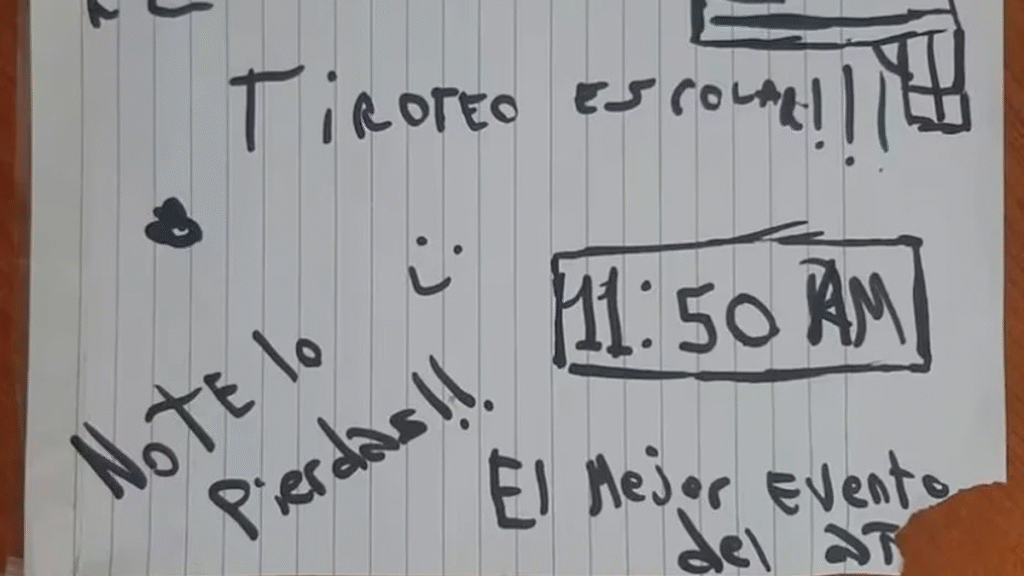 TiROTEO ESCOLAR!!!
11:50 AM
NO TE lo
pierdas!!!
El Mejor Evento
del